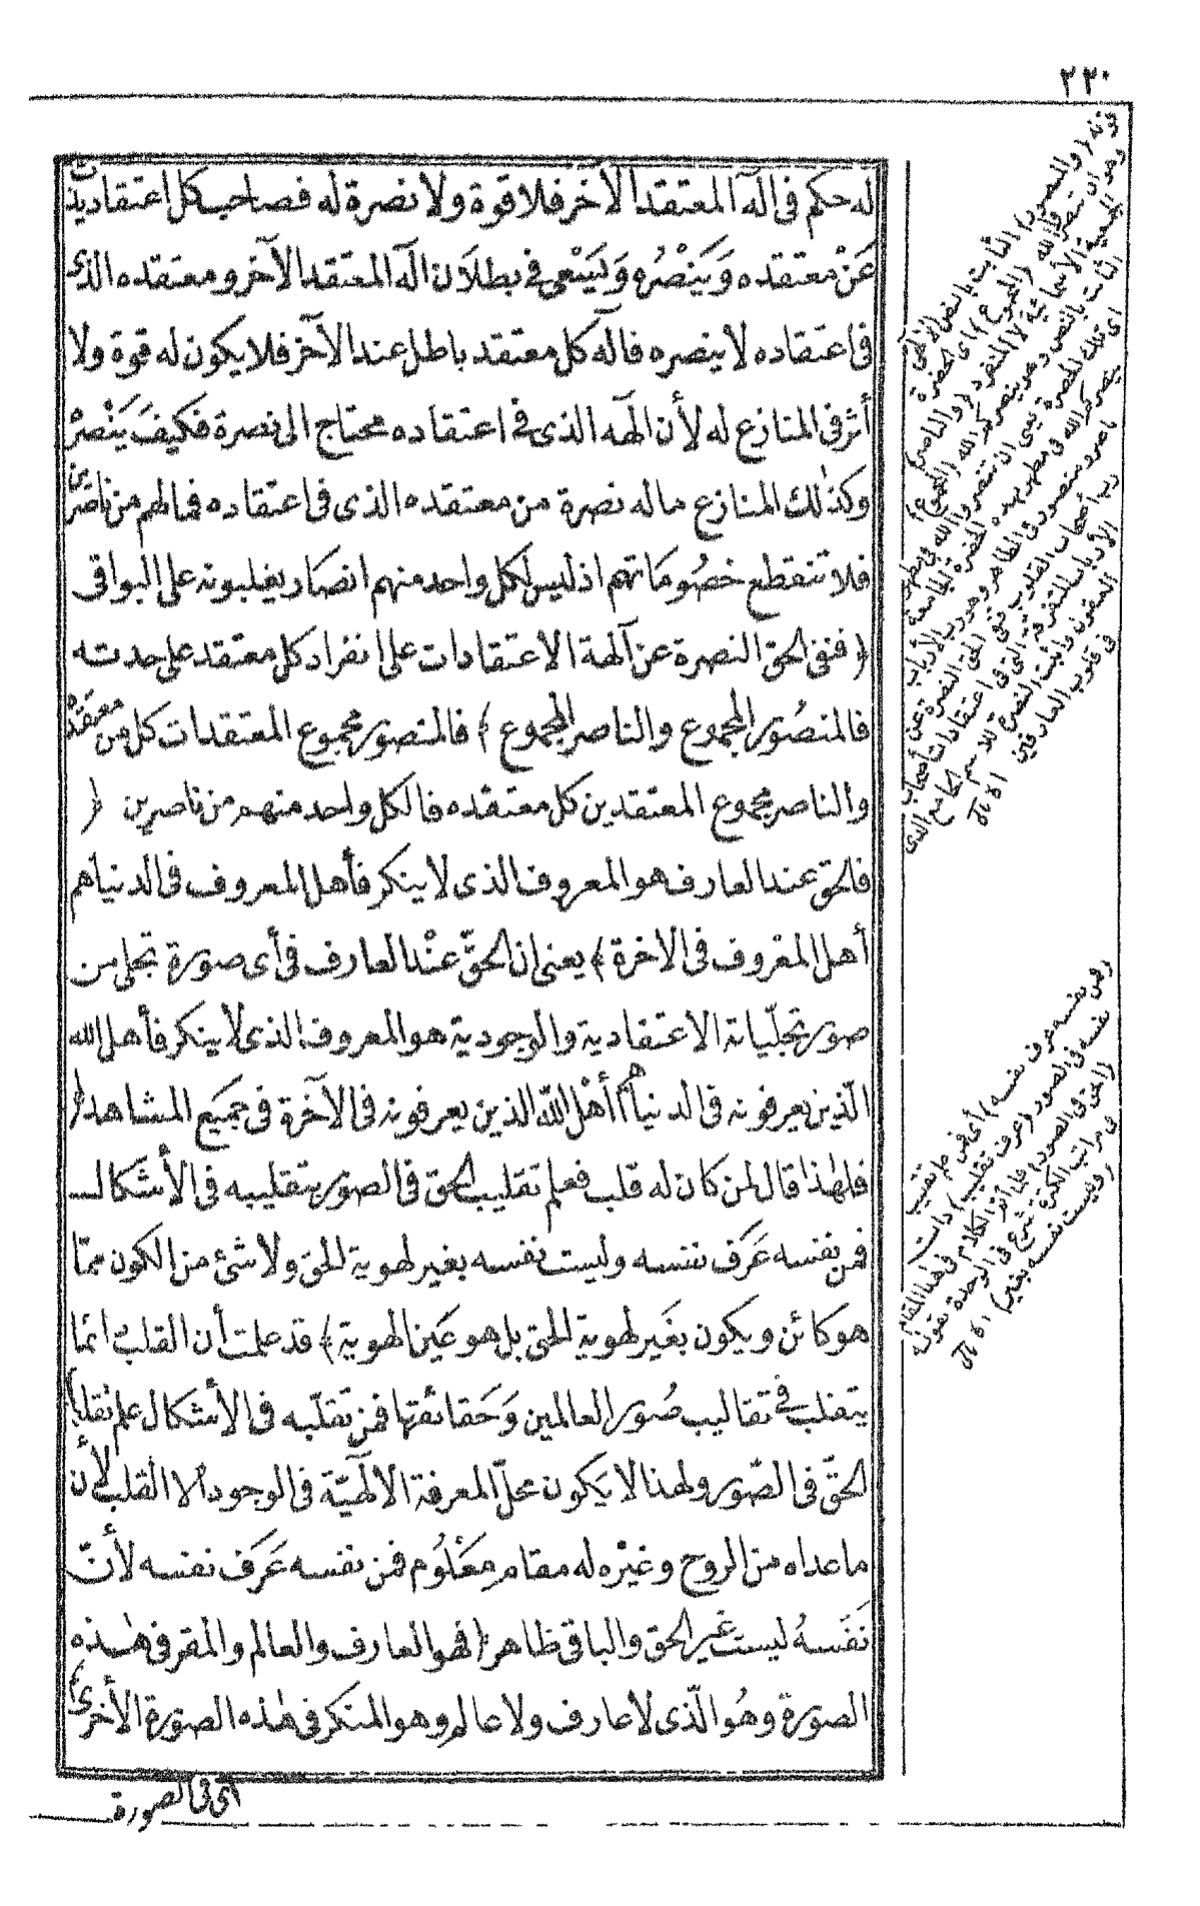 ٢٢٠
له حكم في اله المعتقد الآخر فلا قوة ولا نصرة له فصاحب كل اعتقاد يذب
عَنْ معتقده وَيَنْصُره وَيَسْعى في بطلان اله المعتقد الآخر ومعتقده الذى
فى اعتقاده لا ينصره فاله كل معتقد باطل عند الآخر فلا يكون له قوة ولا
أثر فى المنازع له لأن الهه الذى فى اعتقاده محتاج الى نصرة فكيفَ يَنْصُرْ
وكذلك المنازع ماله نصرة من معتقده الذى فى اعتقاده فمالهم من ناصرين
فلا تنقطع خصُوماتهم اذ ليس لكل واحد منهم انصار يغلبونه على البواقى
﴿ فنفى الحق النصرة عن آلهة الاعتقادات على انفراد كل معتقد على حدته
فالمنصُور المجموع والناصر المجموع ﴾ فالمنصور مجموع المعتقدات كل من معتقَد
والناصر مجموع المعتقدين كل معتقده فما لكل واحد منهم من ناصرين ﴿
فالحق عند العارف هو المعروف الذى لا ينكر فأهل المعروف فى الدنيا هم
أهل المعروف فى الاخرة ﴾ يعنى ان الحقّ عنْد العارف فى أى صورة تجلى من
صور تجلّياته الاعتقادية والوجودية هو المعروف الذى لا ينكر فأهل الله
الّذين يعرفونه فى الدنيا هم أهْل الله الذين يعرفونه فى الآخرة فى جميع المشاهد ﴿
فلهذا قال لمن كان له قلب فعلم تقليب الحق فى الصور بتقليبه فى الأشكال
فمن نفسه عَرَف نفسه وليست نفسه بغير لهوية الحق ولا شئ من الكون ممّا
هو كائن ويكون بغَير لهوية الحق بل هو عَين الهوية ﴾ قد علمت أن القلب انما
يتقلب فى تقاليب صُور العالمين وَحَقائقها فمن تقلّبه فى الأشكال علم تقلب
الحقّ فى الصّور ولهذا لا يَكون محلّ المعرفة الالهيّة فى الوجود الا القلب لأن
ما عداه من الروح وغيْره له مقام مَعْلُوم فمن نفسه عَرَف نفسه لأنّ
نَفَسهُ ليست غير الحق والباقى ظاهر ﴿ فهو العارف والعالم والمقر فى هذه
الصورة وهُو الّذى لا عارف ولا عالم وهو المنكر فى هذه الصورة الأخرى ﴾
أى فى الصورة
ونه ( والنصور ) الثابت بالنص الالهى
وهو ان تنصروا الله ( المجموع ) أى الحضرة
الجمعية الأسمائية لا المنفرد ( والناصر )
الثابت بالنص وهو ينصركم الله ( المجموع )
أى تلك الحضرة يعنى ان تنصروا الله فى مظهر
ينصركم الله فى مظهر بهذه الحضرة الجامعة
ناصر ومنصور فى الظاهر وهو رب الأرباب
رب أصحاب القلوب فنفى الحق النصرة عن
الأرباب المتفرقة التى فى اعتقادات أصحاب
العقول وأثبت النصرة للاسم الجامع الذى
فى قلوب العارفين اه بالى
( فمن نفسه عرف نفسه ) أى فمن علم تقليب
نفسه فى الصور ( عرف تقليب ) ذات
( الحق فى الصور ) فلما أتم الكلام فى هذا المقام
فى مراتب الكثرة شرع فى الوحدة بقوله
( وليست نفسه بغير ) اه بالى